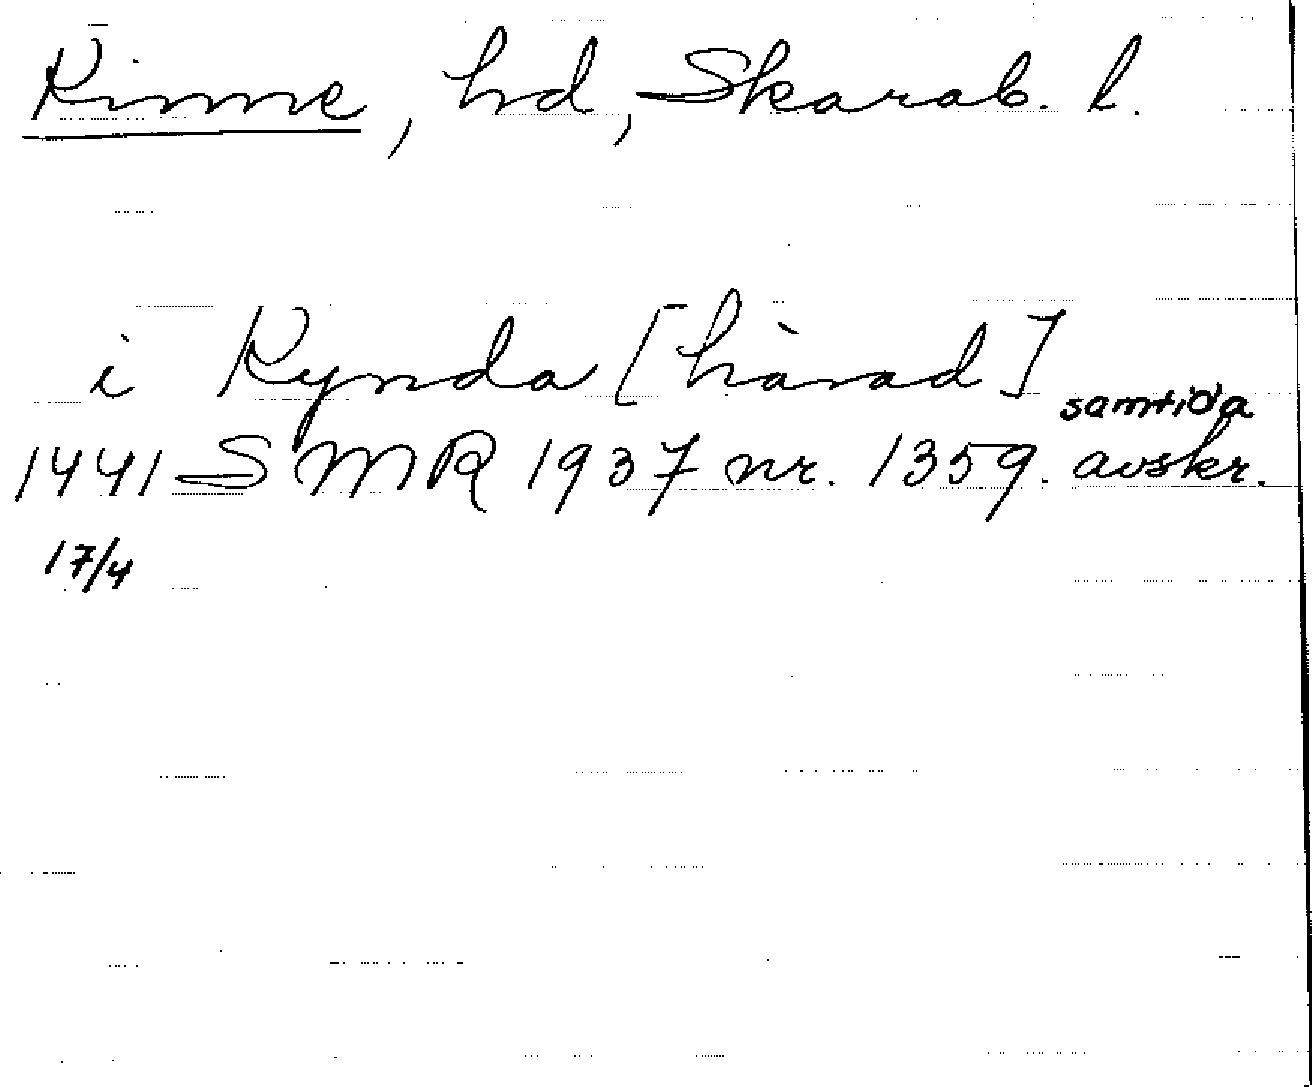 Kinne, hd, Skarab. l.
i Kynda [härad]
samtida
1441 SMR 1937 nr. 1359. avskr.
17/4